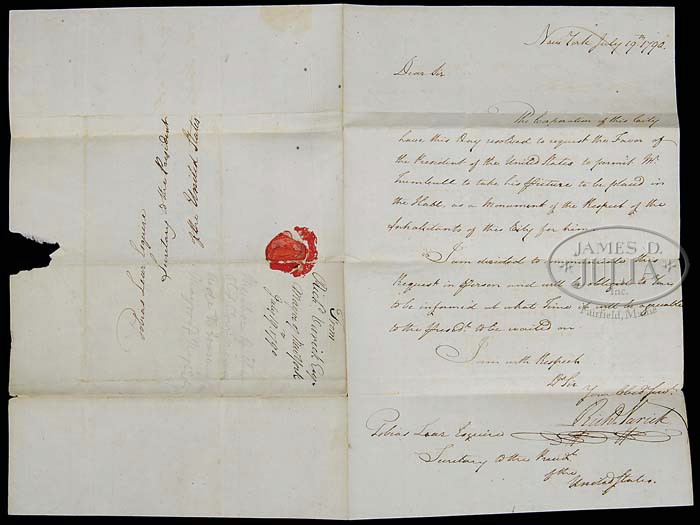 New York July 19th 1790.
Dear Sir
The Corporation of this City
have this Day resolved to request the Favor of
the President of the United States to permit Mr
Trumbull to take his Picture to be placed in
the Hall, as a Monument of the Respect of the
Inhabitants of this City for him.
I am decided to communicate this
Request in Person and will be obliged to You
to be informed at what Time it will be agreeable
to the Presidt. to be waited on
I am with Respect
Dr Sir
Your Obedt Servt.
Richd Varick
Tobias Lear Esquire
Secretary to the Presidt.
of the
United States.
Tobias Lear Esquire
Secretary to the President
of the United States
From
Richd Varick Esqr.
Mayor of New York
July 19. 1790
JAMES D.
JULIA
Inc.
Fairfield, Maine